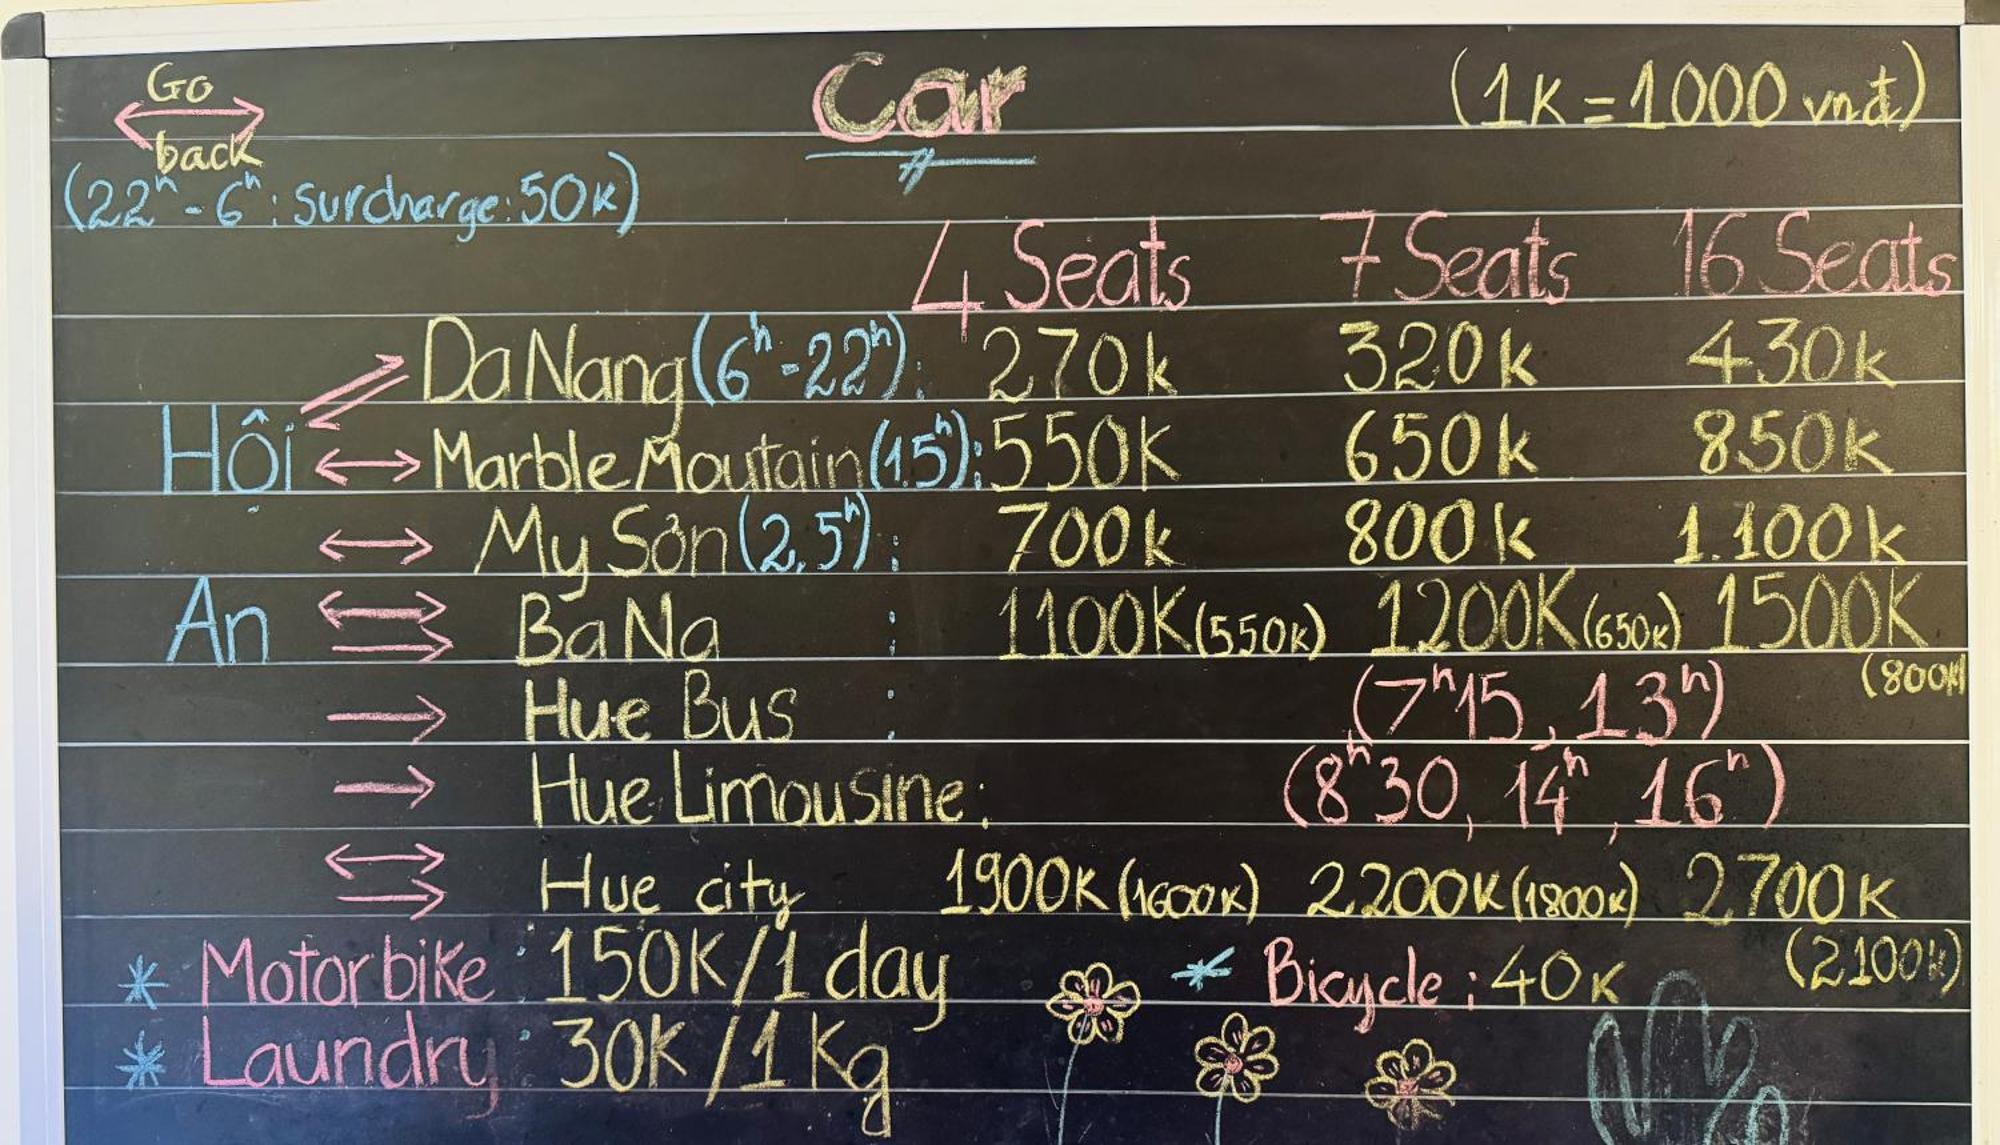 Go
back
Car
(1K = 1000 vnđ)
(22h - 6h : Surcharge : 50K)
4 Seats 7 Seats 16 Seats
Da Nang (6h - 22h) : 270k 320k 430k
Hội Marble Moutain (1.5h) : 550K 650k 850k
My Sơn (2,5h) : 700k 800k 1.100k
An BaNa : 1100K (550K) 1200K (650K) 1500K
(800K)
Hue Bus : (7h15, 13h)
Hue Limousine : (8h30, 14h, 16h)
Hue city 1900K (1600K) 2200K (1800K) 2700K
(2100K)
* Motorbike : 150K/1 day * Bicycle : 40K
* Laundry : 30K/1 Kg